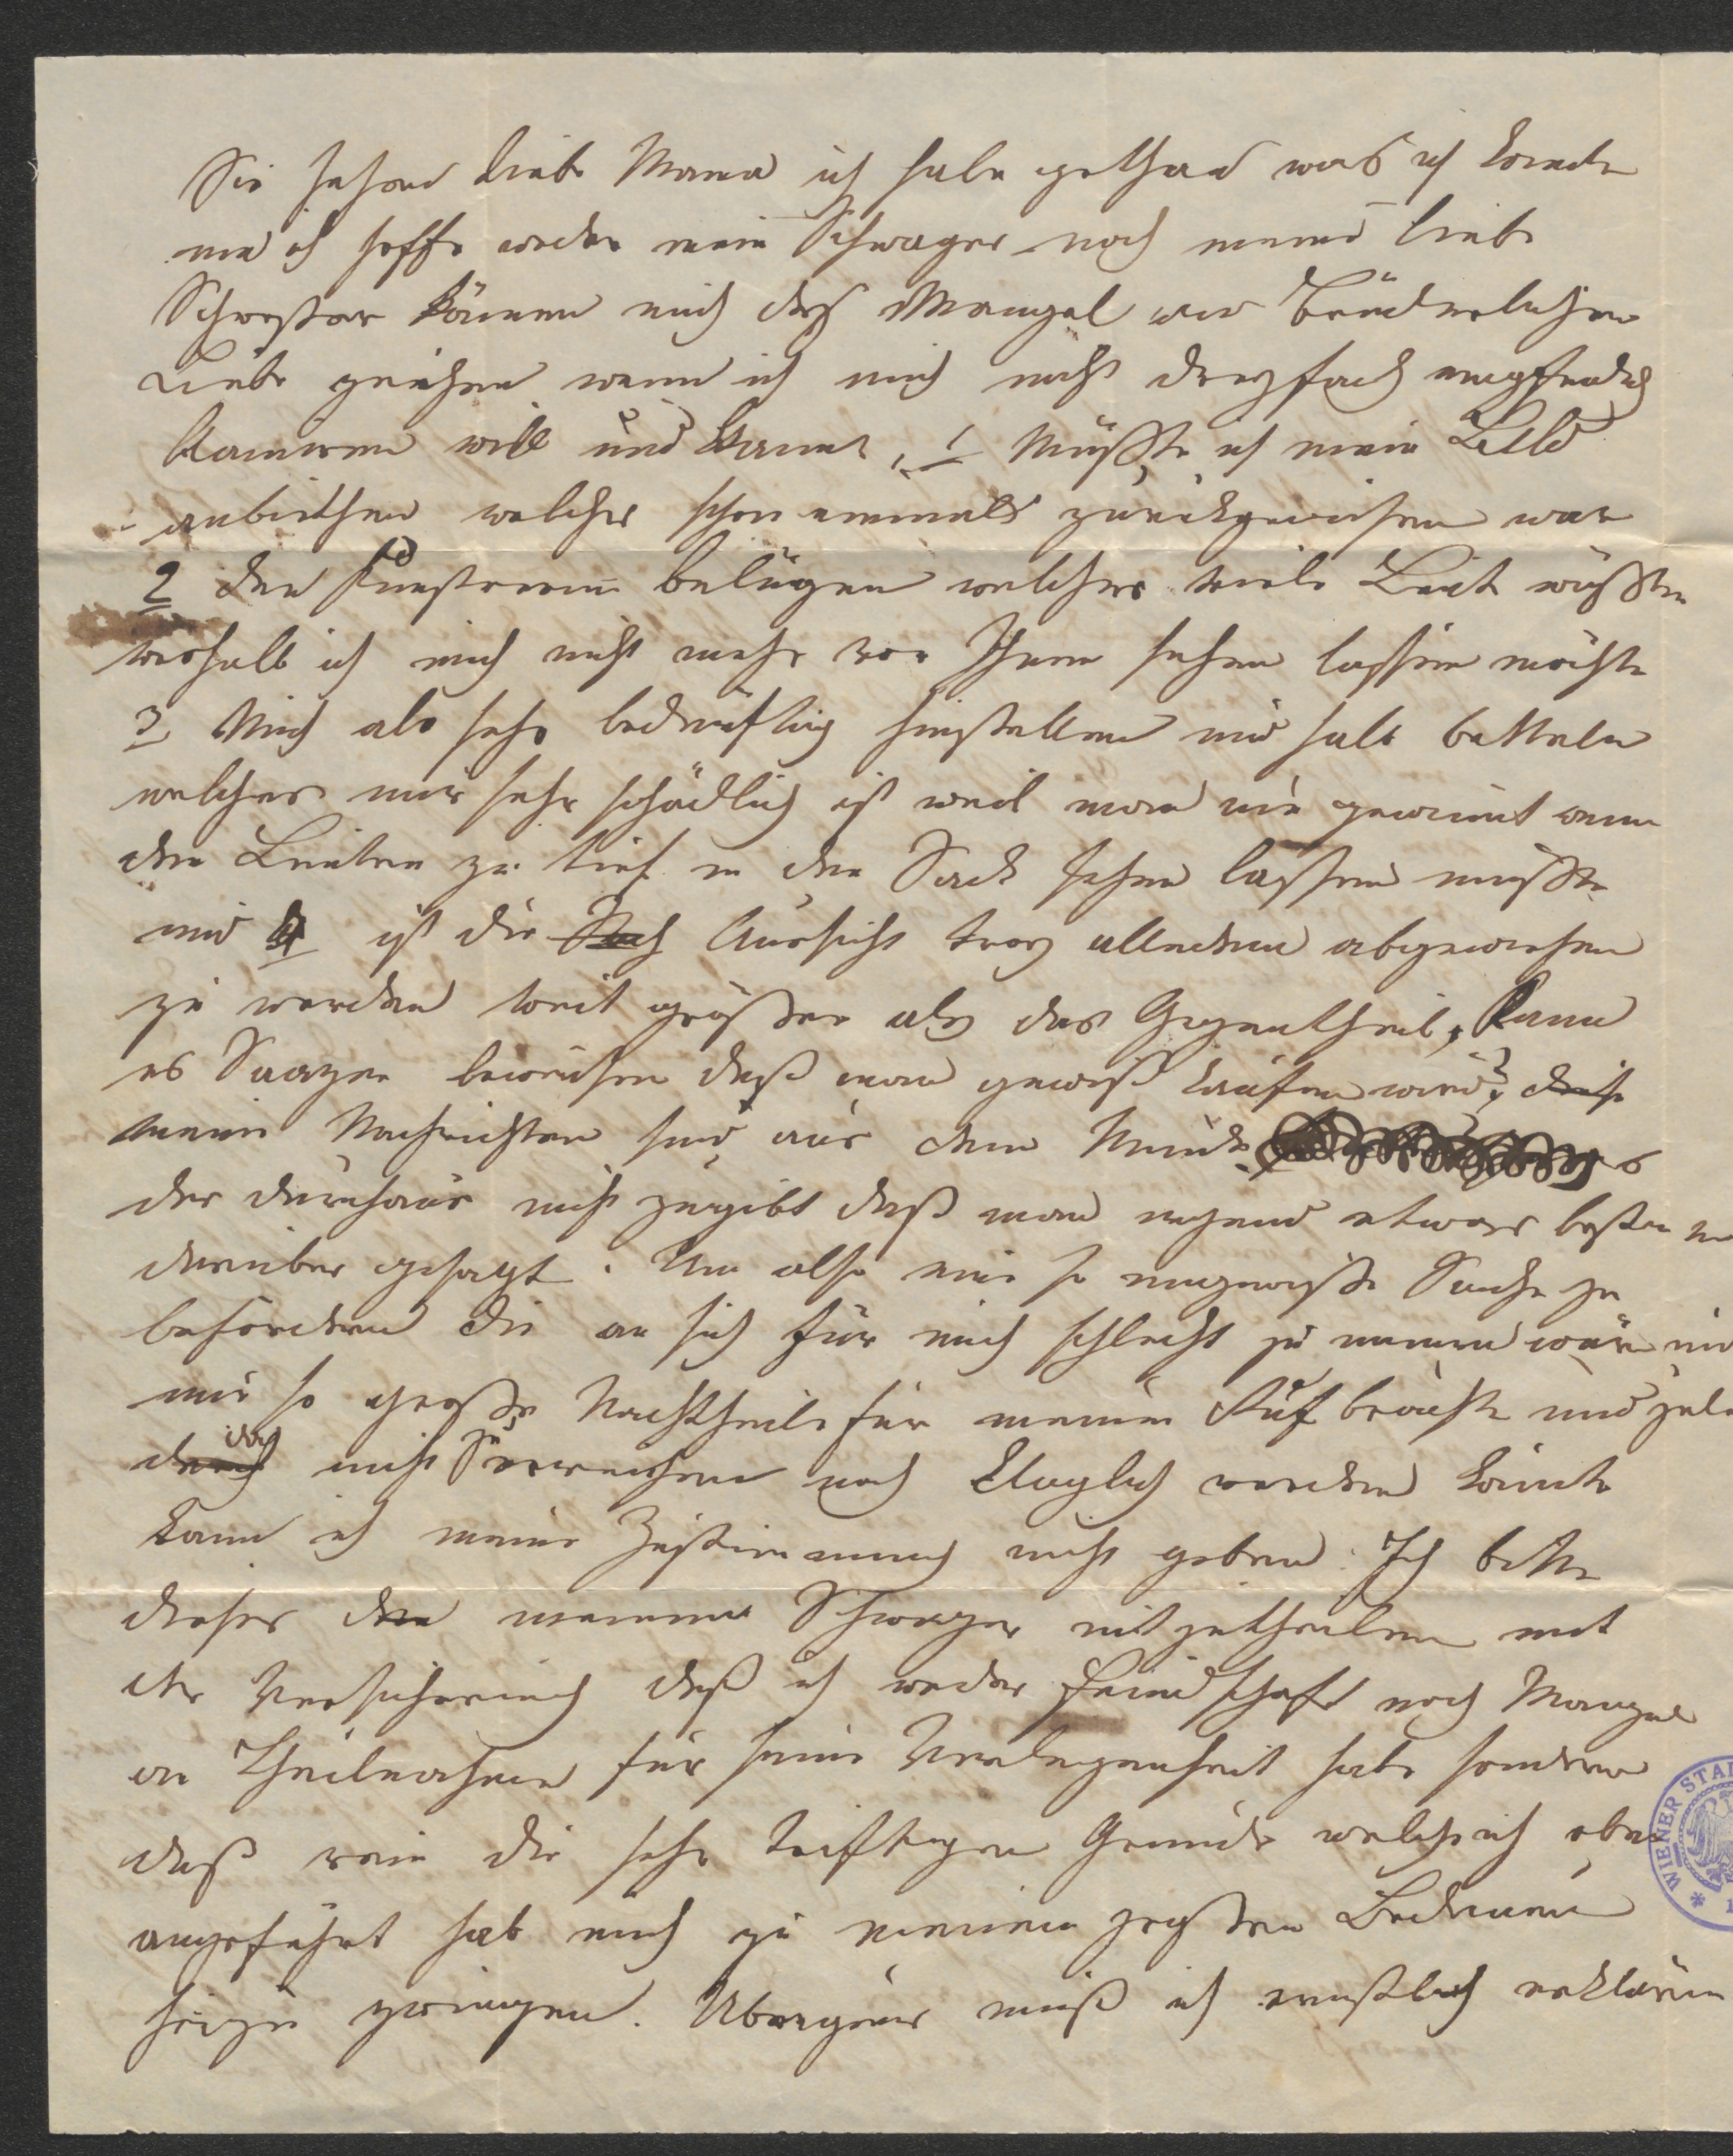 Sie sehen liebe Mama ich habe gethan was ich konnte
und ich hoffe weder mein Schwager noch meine liebe
Schwester können mich des Mangel an Brüderlicher
Liebe zeihen wenn ich mich nicht dreyfach
will und kann, 1 Müßte ich mein Bild
anbiethen welches schon einmals zurückgewiesen war
2 den Kunstverein belügen welches viele Leute wüßten
weshalb ich mich nicht mehr vor Ihnen sehen lassen möchte
3 Mich als sehr bedürftig hinstellen und halb betteln
welches mir sehr schädlich ist weil man nie gewinnt wenn
den Leuten zu tief in den Sack sehen lassen müßte
und 4 ist die Aussicht troz alledem abgewiesen
zu werden weit größer als das Gegentheil, Kann
es Saazer beweisen daß man gewiß kaufen wird? diese
meine Nachrichten sind aus dem Munde
der durchaus nicht zugibt daß man irgend etwas
darüber gesagt. Um also eine so ungewisse Sache zu
befördern die an sich für mich schlecht zu nennen wäre und
mir so große Nachtheile für meinen Ruf brächte und
doch nicht noch klaglich werden könnte
kann ich meine Zustimmung nicht geben. Ich bitte
dieses den meinem Schwager mitzutheilen mit
der Versicherung daß ich weder Feindschaft noch Mangel
an Theilnahme für seine Verlegenheit habe sondern
daß rein die sehr triftigen Gründe welche ich oben
angeführt hab mich zu meinem größten Bedauern
hiezu zwingen. Übrigens muß ich ernstlich erklären
WIENER STA